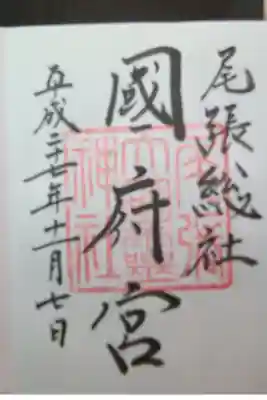 尾張総社
國府宮
平成二十七年十一月七日